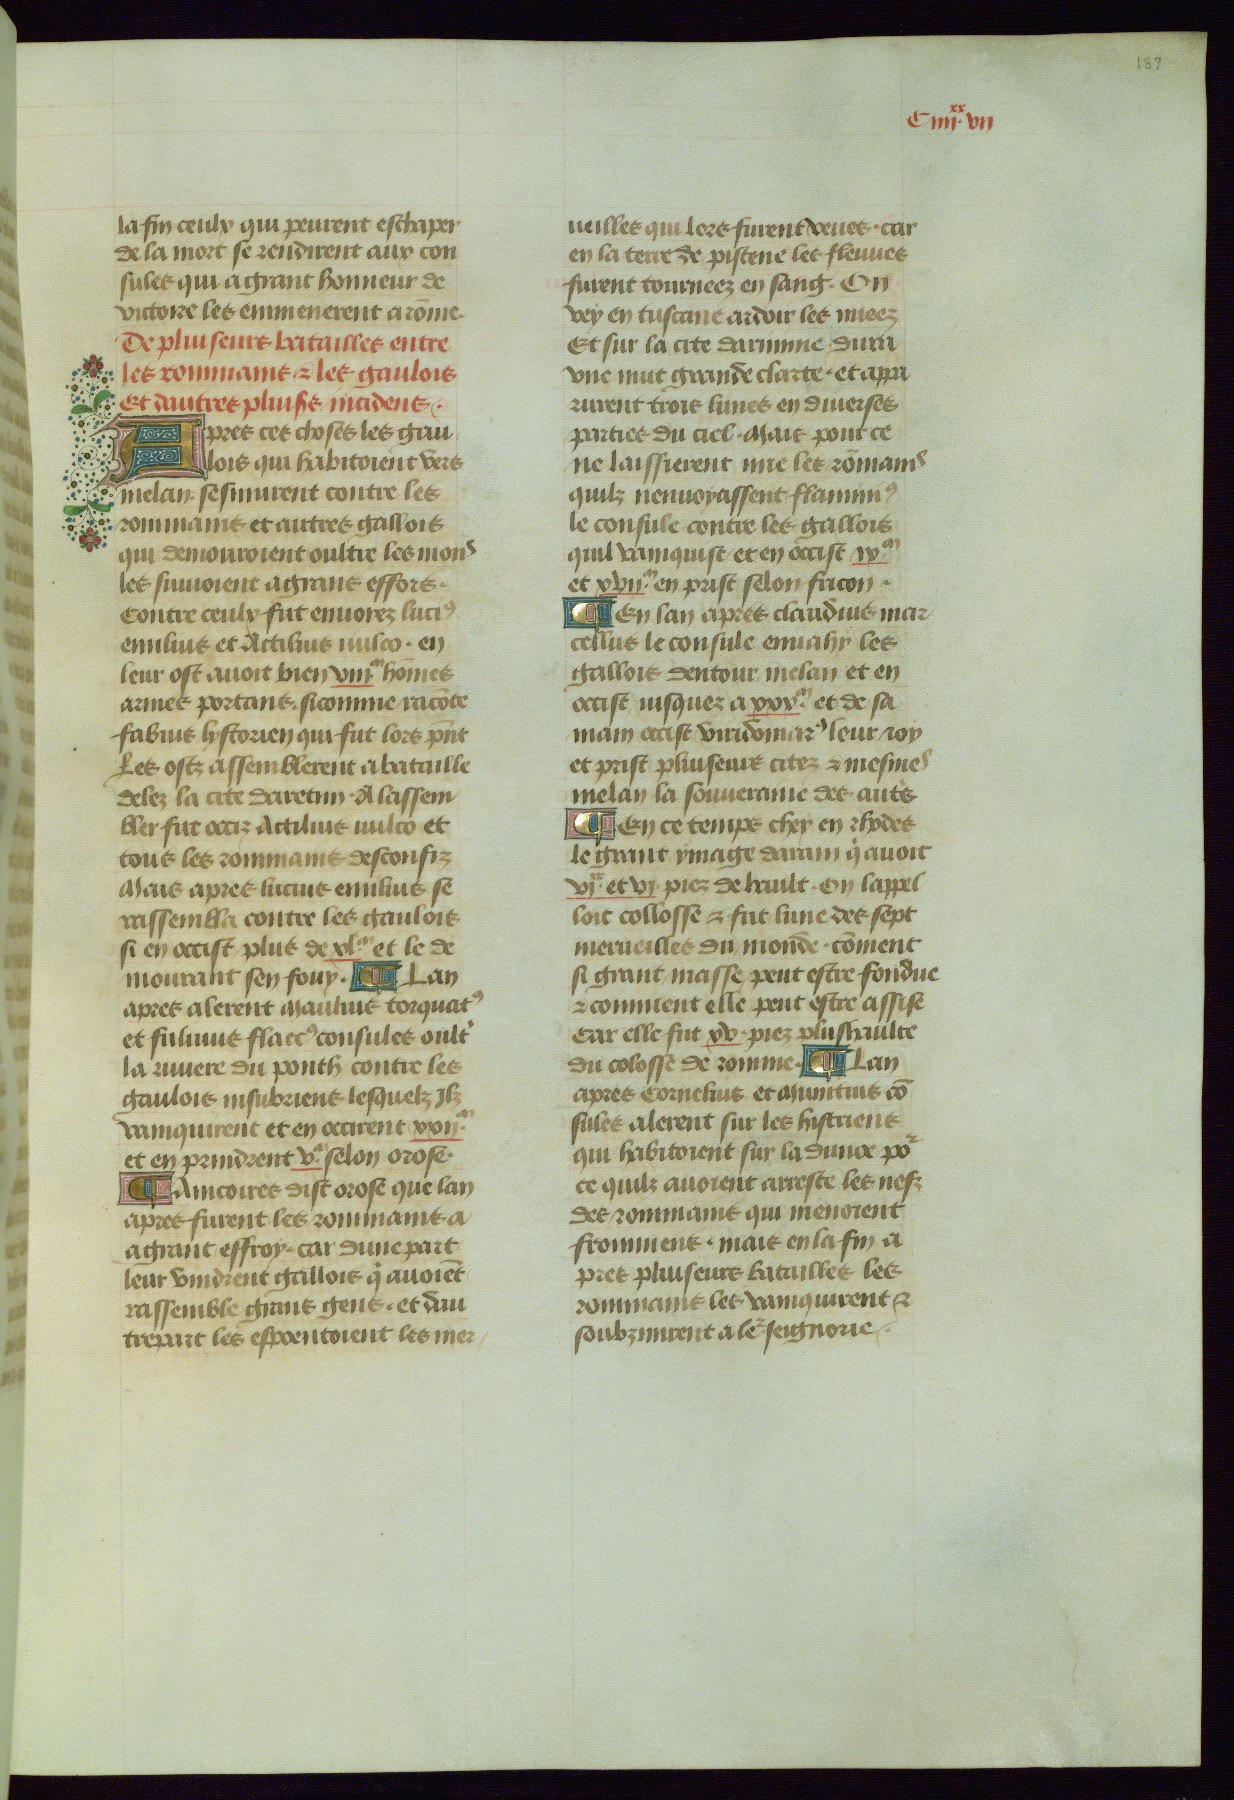 187
C iiii^xx. vii
la fin ceulx qui peurent eschaper
de la mort se rendirent aux con
sules qui a grant honneur de
victoire les emmenerent a rōme.
De pluiseurs batailles entre
les rommains ⁊ les gaulois
Et dautres pluisrs incidens.
Apres ces choses les gau
lois qui habitoient vers
melan. sesmurent contre les
rommains et autres gallois
qui demouroient oultre les mons
les suiuoient a grans effors.
Contre ceulx fut enuoiez luciꝰ
emilius et Actilius uulco. en
leur ost auoit bien viii.^m hōmes
armes portans. sicomme racōte
fabius hystorien qui fut lors pn̄t
Les ostz assemblerent a bataille
delez la cite daretin. A lassem
bler fut occiz Actilius uulco et
tous les rommains desconfiz
Mais apres lucius emilius se
rassembla contre les gaulois
si en occist plus de xl.^m et le de
mourant sen fouy. ¶ Lan
apres alerent Maulius torquatꝰ
et fuluius flaccꝰ consules oult'
la riuiere du ponth contre les
gaulois insubriens lesquelz Ilz
vainquirent et en occirent xxii.^m
et en prindrent v.^m selon orose.
¶ Aincoires dist orose que lan
apres furent les rommains a
a grant effroy. car dune part
leur vindrent gallois q̄ auoiēt
rassemble grans gens. et dau
trepart les espoentoient les mer
ueilles qui lors furent veues. car
en la terre de pistene les fleuues
furent tourneez en sang. On
vey en tuscane ardoir les nueez
Et sur la cite darimine dura
vne mut grande clarte. et appa
rurent trois lunes en diuerses
parties du ciel. Mais pour ce
ne laissierent mie les rōmans
quilz nenuoyassent flaminiꝰ
le consule contre les gallois
quil vainquist et en occist ix.^m
et xvii.^m en prist selon facon.
¶ En lan apres claudius mar
cellus le consule enuahy les
gallois dentour melan et en
occist iusquez a xxx.^m et de sa
main occist viridomarꝰ leur roy
et prist pluiseurs citez ⁊ mesmes
melan la souueraine des aut's
¶ En ce temps chey en rhodes
le grant ymage darain q̄ auoit
vi.^xx et vi. piez de hault. On lappel
loit collosse ⁊ fut lune des sept
merueilles du monde. cōment
si grant masse peut estre fondue
⁊ comment elle peut estre assise
Car elle fut xv. piez plushaulte
du colosse de romme. ¶ Lan
apres Cornelius et Minutius cō
sules alerent sur les histriens
qui habitoient sur la dunoe por
ce quilz auoient arreste les nefz
des rommains qui menoient
fromment. mais en la fin a
pres pluiseurs batailles les
rommains les vainquirent ⁊
soubzmirent a ler seignorie.